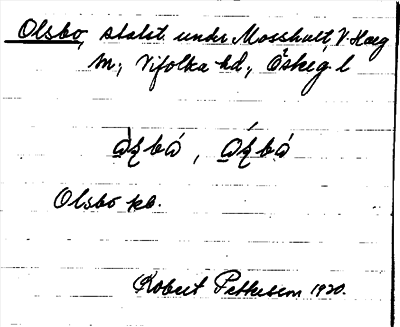 Olsbo, stalst. under Mosshult, V. Harg
m; Vifolka hd; Östeg. l
Olsbo kb.
Robert Pettersson 1920.